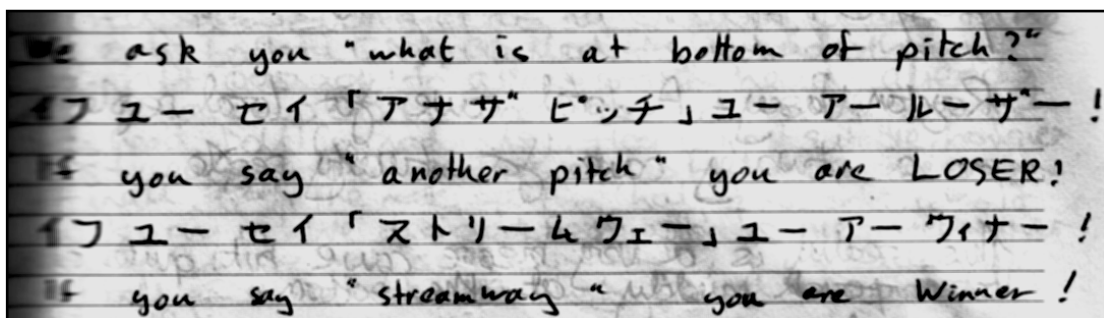 We ask you "what is at bottom of pitch?"
イフ ユー セイ「アナザ ピッチ」ユー アー ルーザー!
If you say "another pitch" you are LOSER!
イフ ユー セイ「ストリームウェー」ユー アー ウィナー!
If you say "streamway" you are Winner!